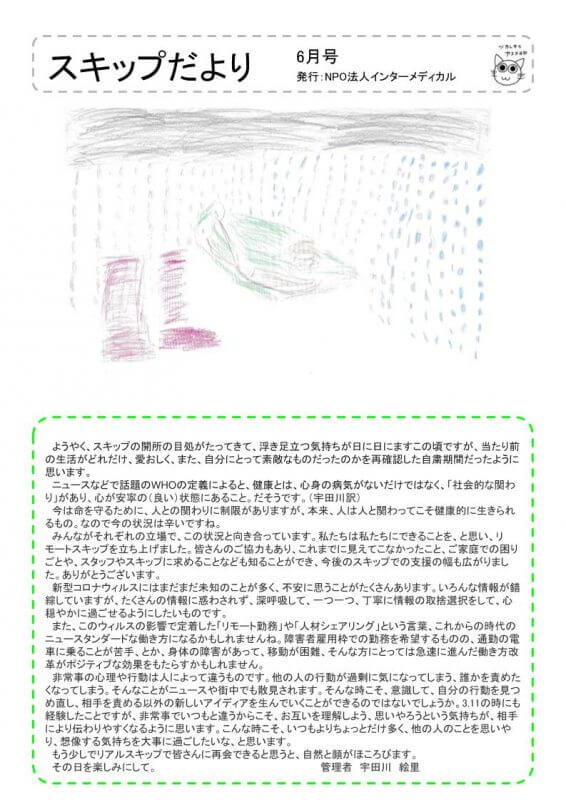 スキップだより
6月号
発行：NPO法人インターメディカル
ようやく、スキップの開所の目処がたってきて、浮き足立つ気持ちが日に日にますこの頃ですが、当たり前
の生活がどれだけ、愛おしく、また、自分にとって素敵なものだったのかを再確認した自粛期間だったように
思います。
ニュースなどで話題のWHOの定義によると、健康とは、心身の病気がないだけではなく、「社会的な関わ
り」があり、心が安寧の（良い）状態にあること。だそうです。（宇田川訳）
今は命を守るために、人との関わりに制限がありますが、本来、人は人と関わってこそ健康的に生きられ
るもの。なので今の状況は辛いですね。
みんながそれぞれの立場で、この状況と向き合っています。私たちは私たちにできることを、と思い、リ
モートスキップを立ち上げました。皆さんのご協力もあり、これまでに見えてこなかったこと、ご家庭での困り
ごとや、スタッフやスキップに求めることなども知ることができ、今後のスキップでの支援の幅も広がりまし
た。ありがとうございます。
新型コロナウィルスにはまだまだ未知のことが多く、不安に思うことがたくさんあります。いろんな情報が錯
綜していますが、たくさんの情報に惑わされず、深呼吸して、一つ一つ、丁寧に情報の取捨選択をして、心
穏やかに過ごせるようにしたいものです。
また、このウィルスの影響で定着した「リモート勤務」や「人材シェアリング」という言葉、これからの時代の
ニュースタンダードな働き方になるかもしれませんね。障害者雇用枠での勤務を希望するものの、通勤の電
車に乗ることが苦手、とか、身体の障害があって、移動が困難、そんな方にとっては急速に進んだ働き方改
革がポジティブな効果をもたらすかもしれません。
非常事の心理や行動は人によって違うものです。他の人の行動が過剰に気になってしまう、誰かを責めた
くなってしまう。そんなことがニュースや街中でも散見されます。そんな時こそ、意識して、自分の行動を見つ
め直し、相手を責める以外の新しいアイディアを生んでいくことができるのではないでしょうか。3.11の時にも
経験したことですが、非常事でいつもと違うからこそ、お互いを理解しよう、思いやろうという気持ちが、相手
により伝わりやすくなるように思います。こんな時こそ、いつもよりちょっとだけ多く、他の人のことを思いや
り、想像する気持ちを大事に過ごしたいな、と思います。
もう少しでリアルスキップで皆さんに再会できると思うと、自然と顔がほころびます。
その日を楽しみにして。 管理者 宇田川 絵里